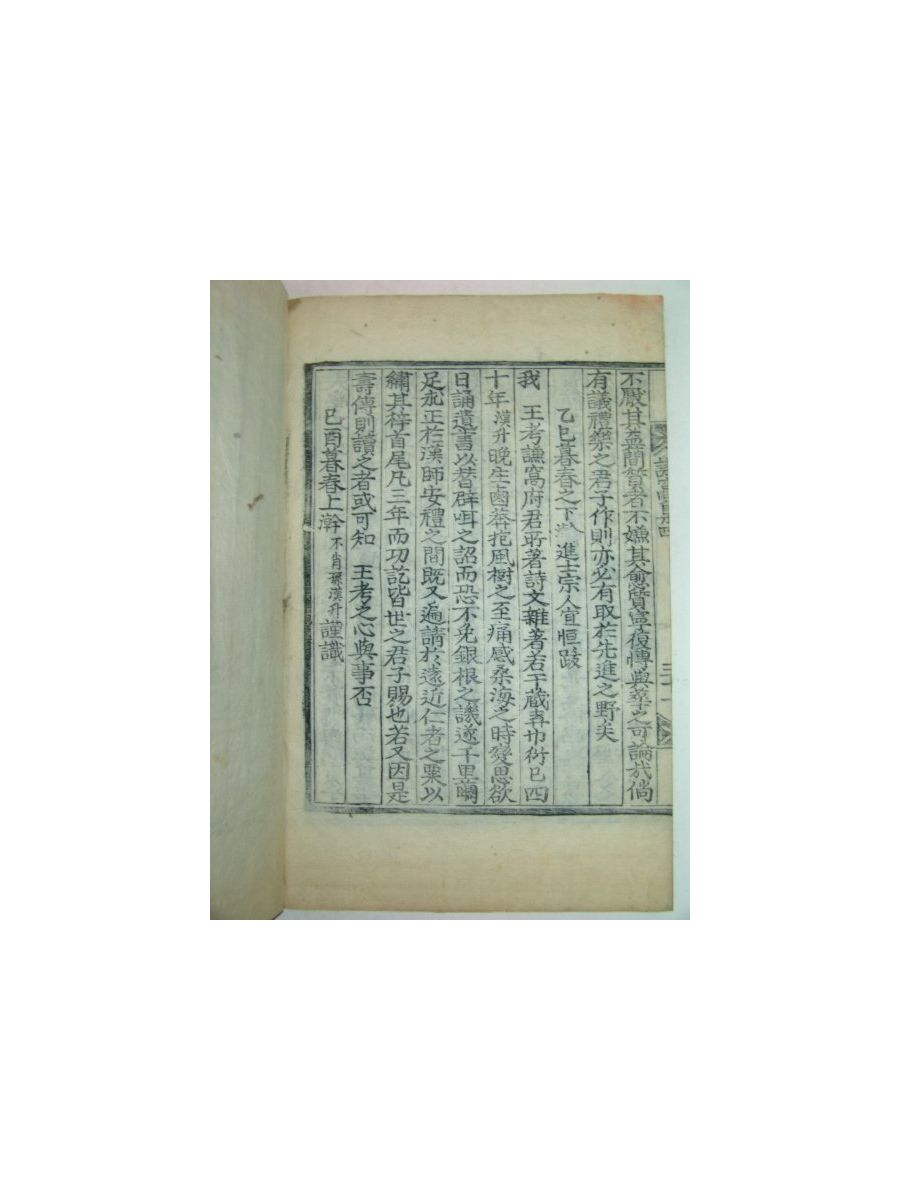 不厭其孟簡贊者不嫌其愈質寔復傳與羣之奇論哉倘
有議禮樂之君子作則亦必有取於先進之野矣
乙巳暮春之下澣進士宗人宜恒跋
我 王考謙窩府君所著詩文雜著若干藏弆巾衍已四
十年漢升晩生鹵莽抱風樹之至痛感桑海之時變思欲
日誦遺書以替辟咡之詔而恐不免銀根之譏遂千里
足求正於漢師安禮之間旣又遍請於遠近仁者之粟以
繡其梓首尾凡三年而功訖皆世之君子賜也若又因是
壽傳則讀之者或可知 王考之心與事否
己酉暮春上澣不肖孫漢升謹識